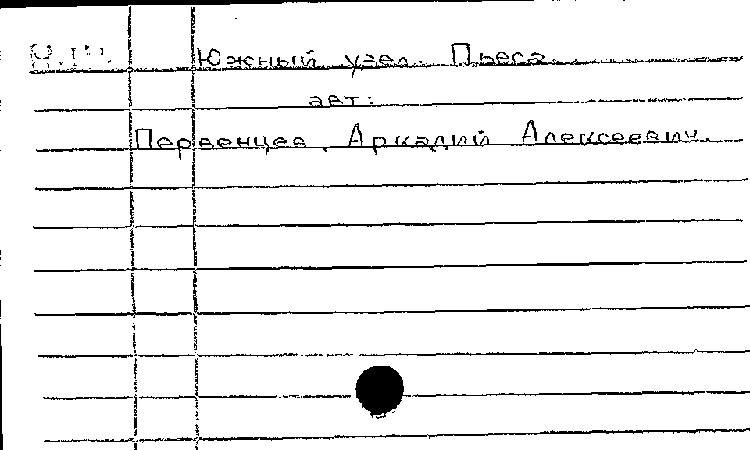 Южный узел. Пьеса.
авт:
Первенцев, Аркадий Алексеевич.